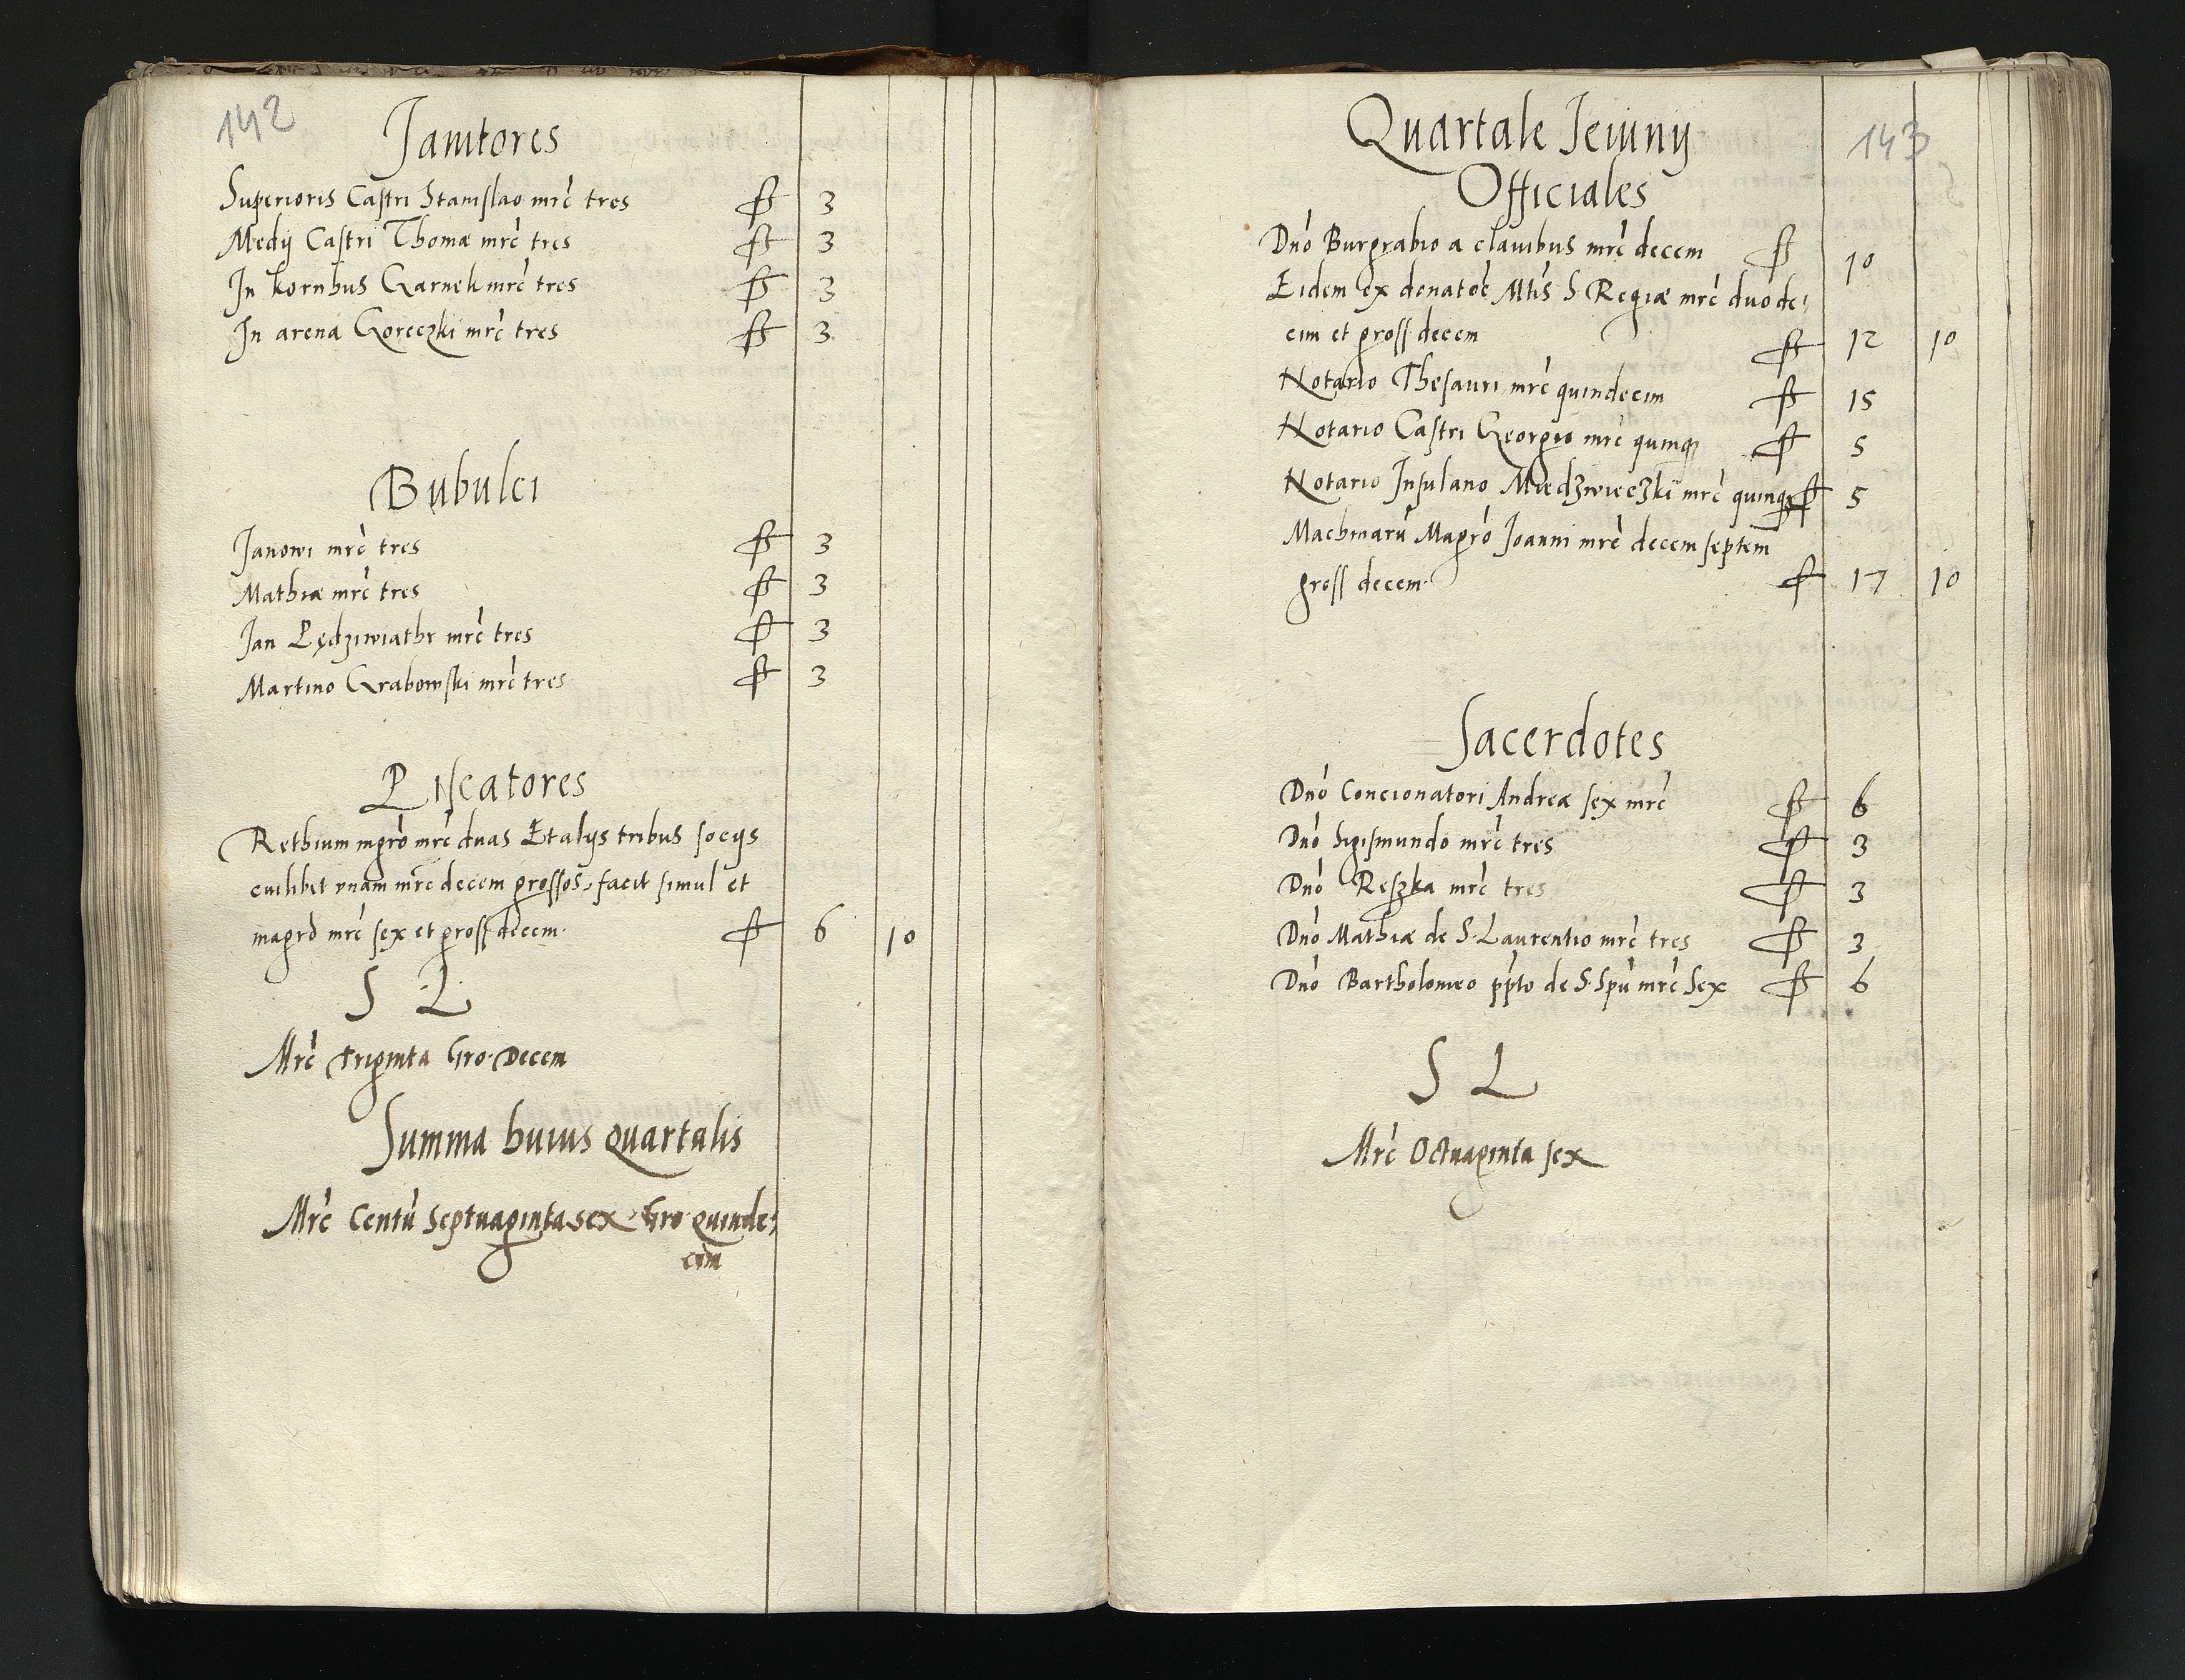 142
Janitores
Superioris Castri Stanislao mrć tres ff 3
Medij Castri Thomæ mrć tres ff 3
In kornhus Garnek mrć tres ff 3
In arena Goreczki mrć tres ff 3
Bubulci
Janowi mrć tres ff 3
Mathiæ mrć tres ff 3
Jan Pędziwiathr mrć tres ff 3
Martino Grabowski mrć tres ff 3
Piscatores
Rethium mgrò mrć duas Et alijs tribus socijs
cuilibet vnam mrć decem grossos, facit simul et
magrò mrć sex et gross decem. ff 6 10
S L
Mrć triginta Gro. Decem
Summa huius Quartalis
Mrć Centũ Septuaginta sex Gro quinde:
cim
Quartale Jeiunij 143
Officiales
Dnó Burgrabio a clauibus mrć decem ff 10
Eidem ex donatóe Mtis S. Regiæ mrć duode:
cim et gross decem ff 12 10
Notario Thesauri mrć quindecim ff 15
Notario Castri Georgio mrć quinq ff 5
Notario Insulano Miedzwieczki mrć quinq ff 5
Machinarũ Magrò Joanni mrć decem septem
gross decem. ff 17 10
Sacerdotes
Dnó Concionatori Andreæ sex mrć ff 6
Dnó Sigismundo mrć tres ff 3
Dnó Reszka mrć tres ff 3
Dnó Mathiæ de S. Laurentio mrć tres ff 3
Dnó Bartholomeo ppto de S. Spũ mrć Sex ff 6
S L
Mrć Octuaginta sex